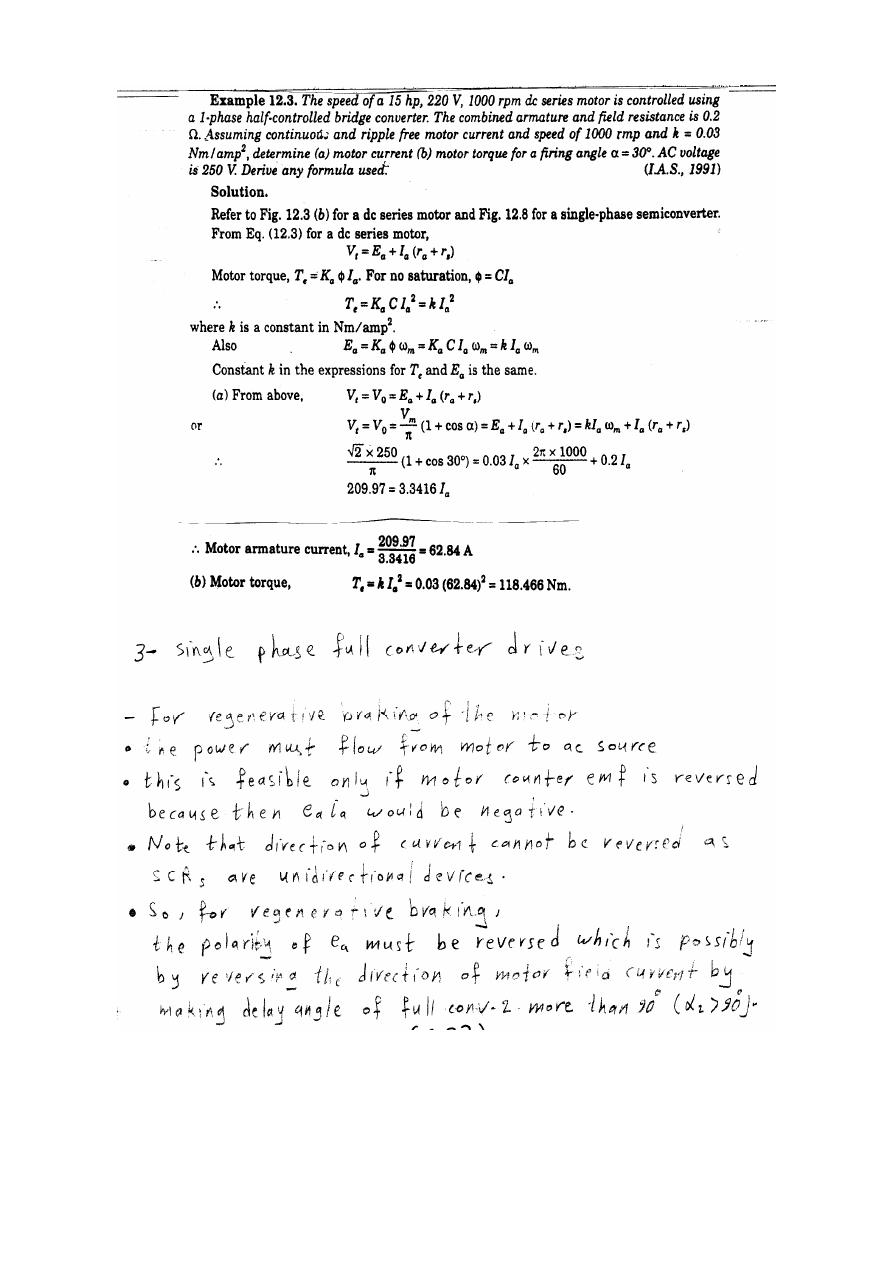 Example 12.3. The speed of a 15 hp, 220 V, 1000 rpm dc series motor is controlled using
a 1-phase half-controlled bridge converter. The combined armature and field resistance is 0.2
Ω. Assuming continuous and ripple free motor current and speed of 1000 rmp and k = 0.03
Nm/amp², determine (a) motor current (b) motor torque for a firing angle α = 30°. AC voltage
is 250 V. Derive any formula used. (I.A.S., 1991)
Solution.
Refer to Fig. 12.3 (b) for a dc series motor and Fig. 12.8 for a single-phase semiconverter.
From Eq. (12.3) for a dc series motor,
Vₜ = Eₐ + Iₐ (rₐ + rₛ)
Motor torque, Tₑ = Kₐ ϕ Iₐ. For no saturation, ϕ = CIₐ
∴ Tₑ = Kₐ C Iₐ² = k Iₐ²
where k is a constant in Nm/amp².
Also Eₐ = Kₐ ϕ ωₘ = Kₐ C Iₐ ωₘ = k Iₐ ωₘ
Constant k in the expressions for Tₑ and Eₐ is the same.
(a) From above, Vₜ = V₀ = Eₐ + Iₐ (rₐ + rₛ)
or Vₜ = V₀ = Vₘ/π (1 + cos α) = Eₐ + Iₐ (rₐ + rₛ) = kIₐ ωₘ + Iₐ (rₐ + rₛ)
∴ √2 × 250/π (1 + cos 30°) = 0.03 Iₐ × 2π × 1000/60 + 0.2 Iₐ
209.97 = 3.3416 Iₐ
∴ Motor armature current, Iₐ = 209.97/3.3416 = 62.84 A
(b) Motor torque, Tₑ = k Iₐ² = 0.03 (62.84)² = 118.466 Nm.
3- single phase full converter drives
- For regenerative braking of the motor
• the power must flow from motor to ac source
• this is feasible only if motor counter emf is reversed
because then eₐiₐ would be negative.
• Note that direction of current cannot be reversed as
SCRs are unidirectional devices.
• So, for regenerative braking,
the polarity of eₐ must be reversed which is possibly
by reversing the direction of motor field current by
making delay angle of full conv-2 more than 90° (α₂>90°).